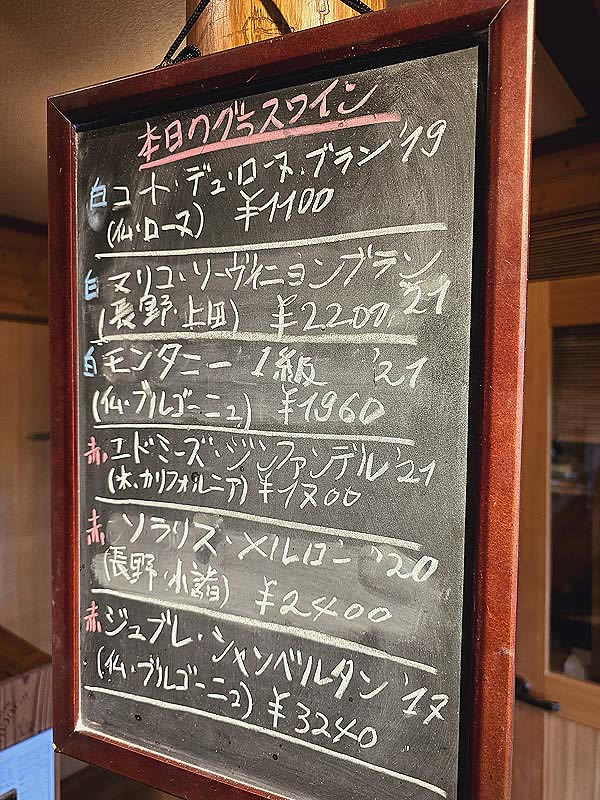 本日のグラスワイン
白 コート・デュ・ローヌ・ブラン '19
(仏・ローヌ) ¥1100
白 マリコ・ソーヴィニョンブラン
(長野・上田) ¥2200 '21
白 モンタニー 1級 '21
(仏・ブルゴーニュ) ¥1960
赤 エドミーズ・ジンファンデル '21
(米・カリフォルニア) ¥1700
赤 ソラリス・メルロー '20
(長野・小諸) ¥2400
赤 ジュブレ・シャンベルタン '17
(仏・ブルゴーニュ) ¥3240